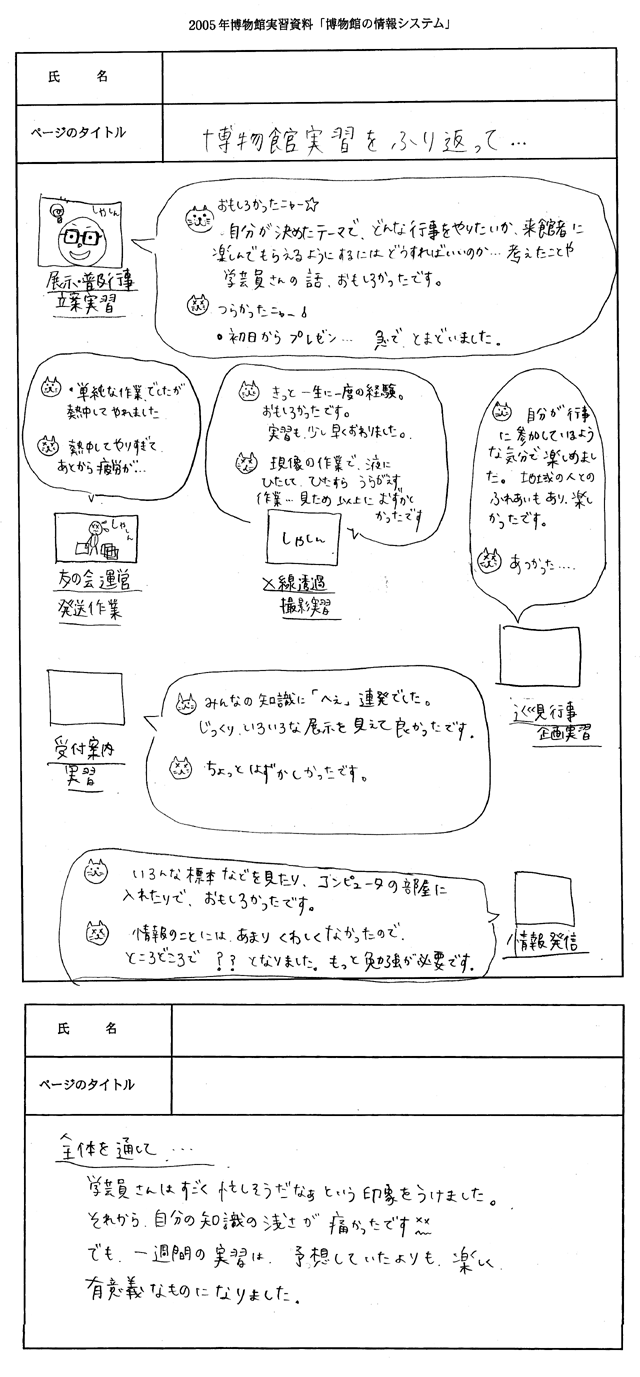 2005年博物館実習資料「博物館の情報システム」
氏　名
ページのタイトル
博物館実習をふり返って…
しゃしん
展示・普及行事
立案実習
おもしろかったニャー☆
・自分が決めたテーマで、どんな行事をやりたいか、来館者に
楽しんでもらえるようにするにはどうすればいいのか…考えたことや
学芸員さんの話、おもしろかったです。
つらかったニャー
・初日からプレゼン… 急で、とまどいました。
・単純な作業でしたが
熱中してやれました
熱中してやりすぎて、
あとから疲労が…
しゃしん
友の会運営
発送作業
きっと一生に一度の経験。
おもしろかったです。
実習も、少し早くおわりました。
現像の作業で、液に
ひたして、ひたすらうらがえす
作業…見ため以上にむずかし
かったです
しゃしん
X線透過
撮影実習
自分が行事
に参加しているよう
な気分で楽しめまし
た。地域の人との
ふれあいもあり、楽し
かったです。
あつかった….
巡見行事
企画実習
受付案内
実習
みんなの知識に「へぇ」連発でした。
じっくり、いろいろな展示を見えて良かったです。
ちょっとはずかしかったです。
いろんな標本などを見たり、コンピュータの部屋に
入れたりで、おもしろかったです。
情報のことには、あまりくわしくなかったので、
ところどころで ？？となりました。もっと勉強が必要です。
情報発信
氏　名
ページのタイトル
全体を通して…
学芸員さんはすごく忙しそうだなぁという印象をうけました。
それから、自分の知識の浅さが痛かったです
でも、一週間の実習は、予想していたよりも、楽しく、
有意義なものになりました。